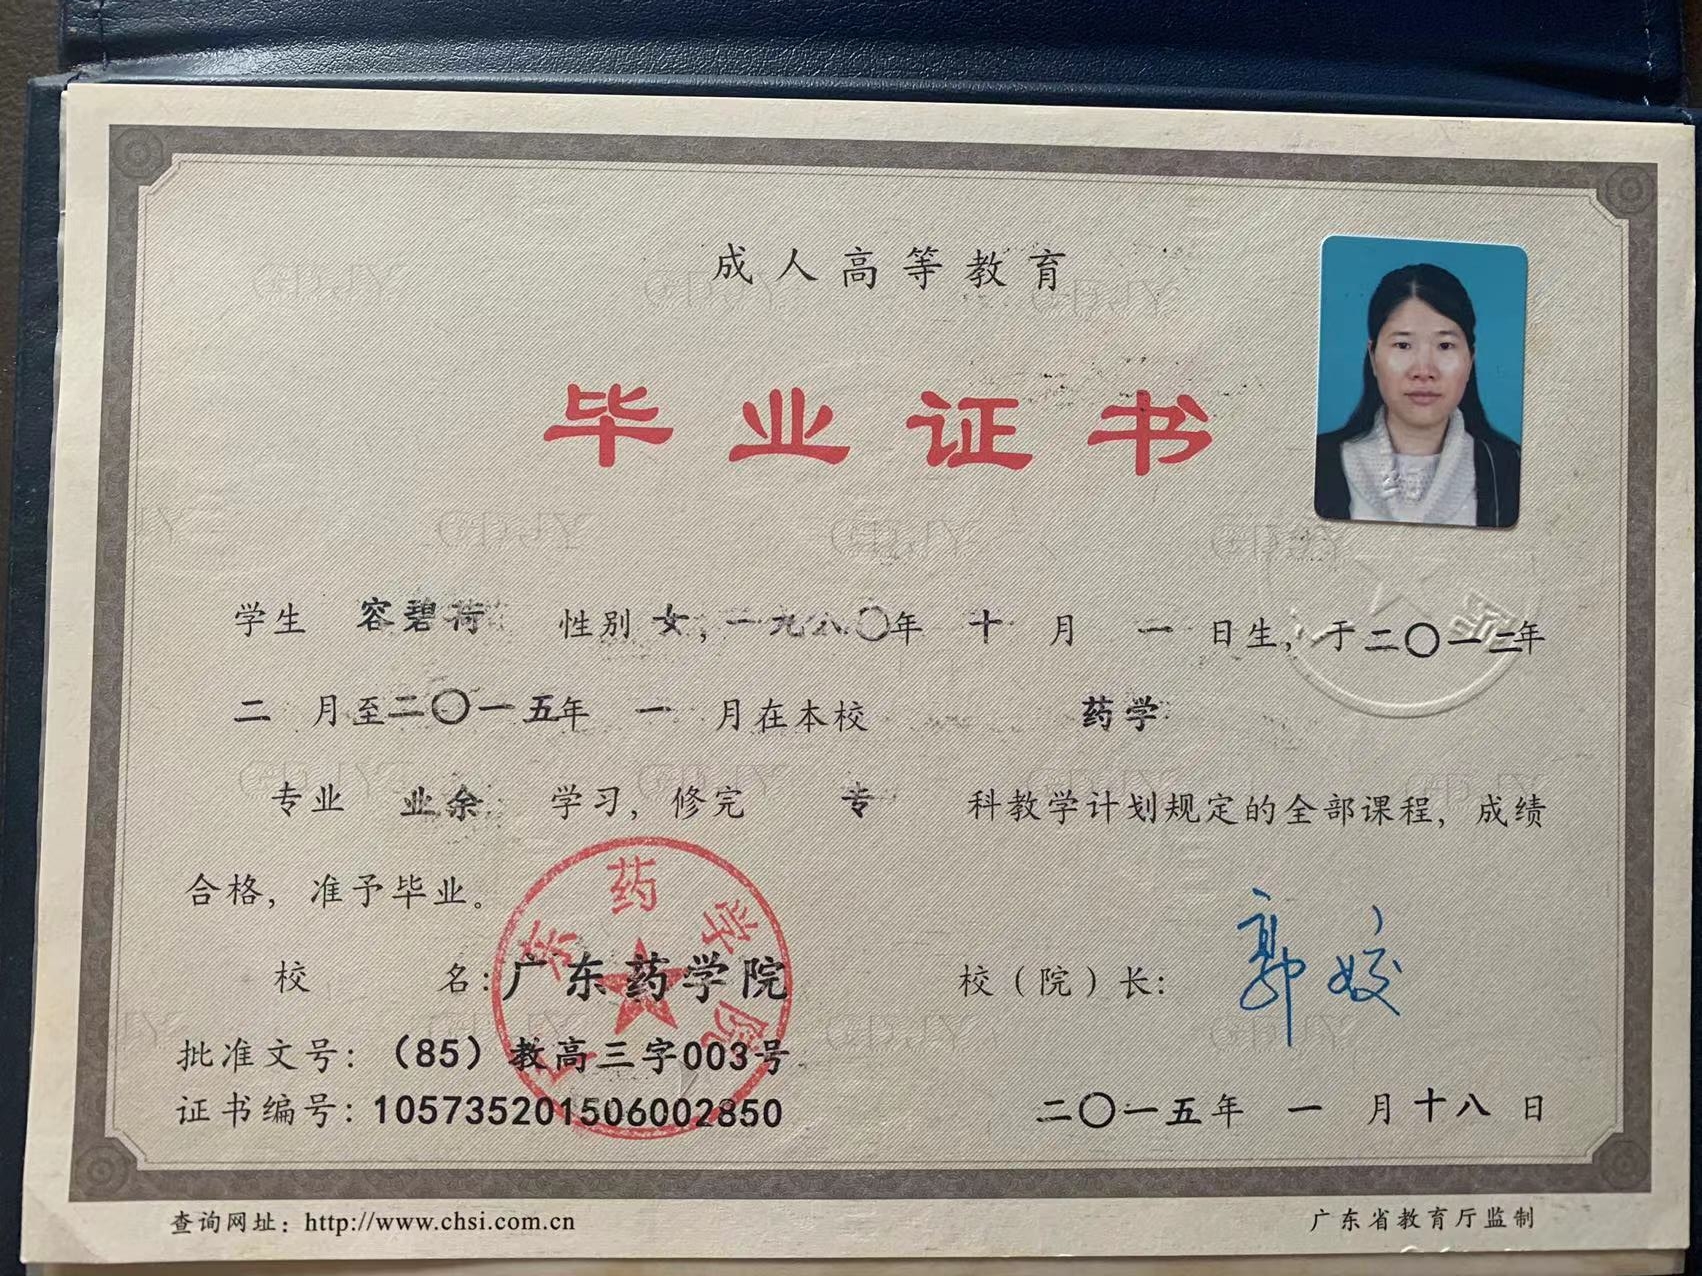 成人高等教育
毕业证书
学生 容碧荷 性别 女, 一九八〇年 十 月 一 日生, 于二〇一二年
二 月至二〇一五年 一 月在本校 药学
专业 业余 学习, 修完 专 科教学计划规定的全部课程, 成绩
合格, 准予毕业。
校 名: 广东药学院 校(院)长: 郭姣
批准文号: (85)教高三字003号
证书编号: 105735201506002850 二〇一五年 一 月十八日
广东药学院
查询网址: http://www.chsi.com.cn 广东省教育厅监制
GDJY